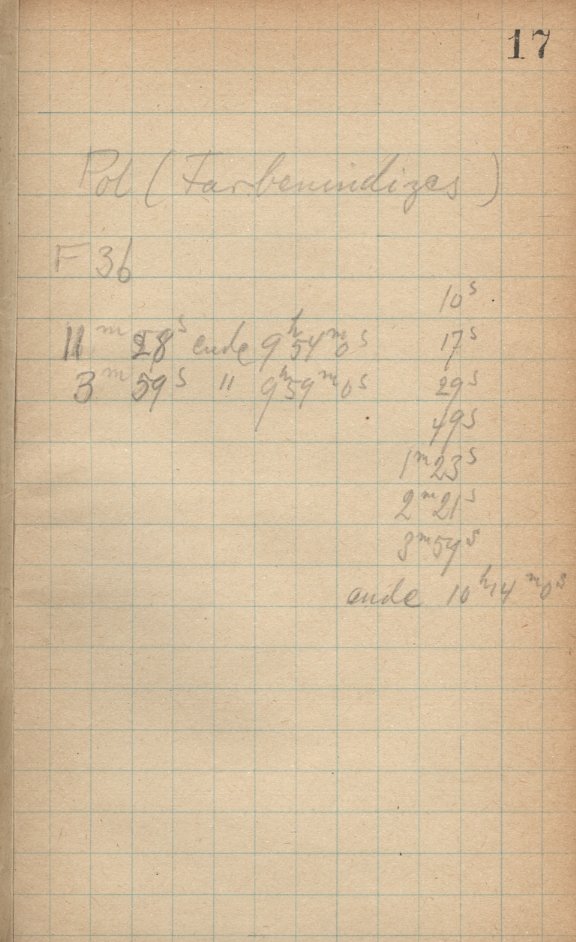 17
Pol (Farbenindizes)
F 36
10ˢ
11ᵐ 28ˢ ende 9ʰ54ᵐ0ˢ 17ˢ
3ᵐ 59ˢ " 9ʰ59ᵐ0ˢ 29ˢ
49ˢ
1ᵐ23ˢ
2ᵐ21ˢ
3ᵐ54ˢ
ende 10ʰ14ᵐ0ˢ